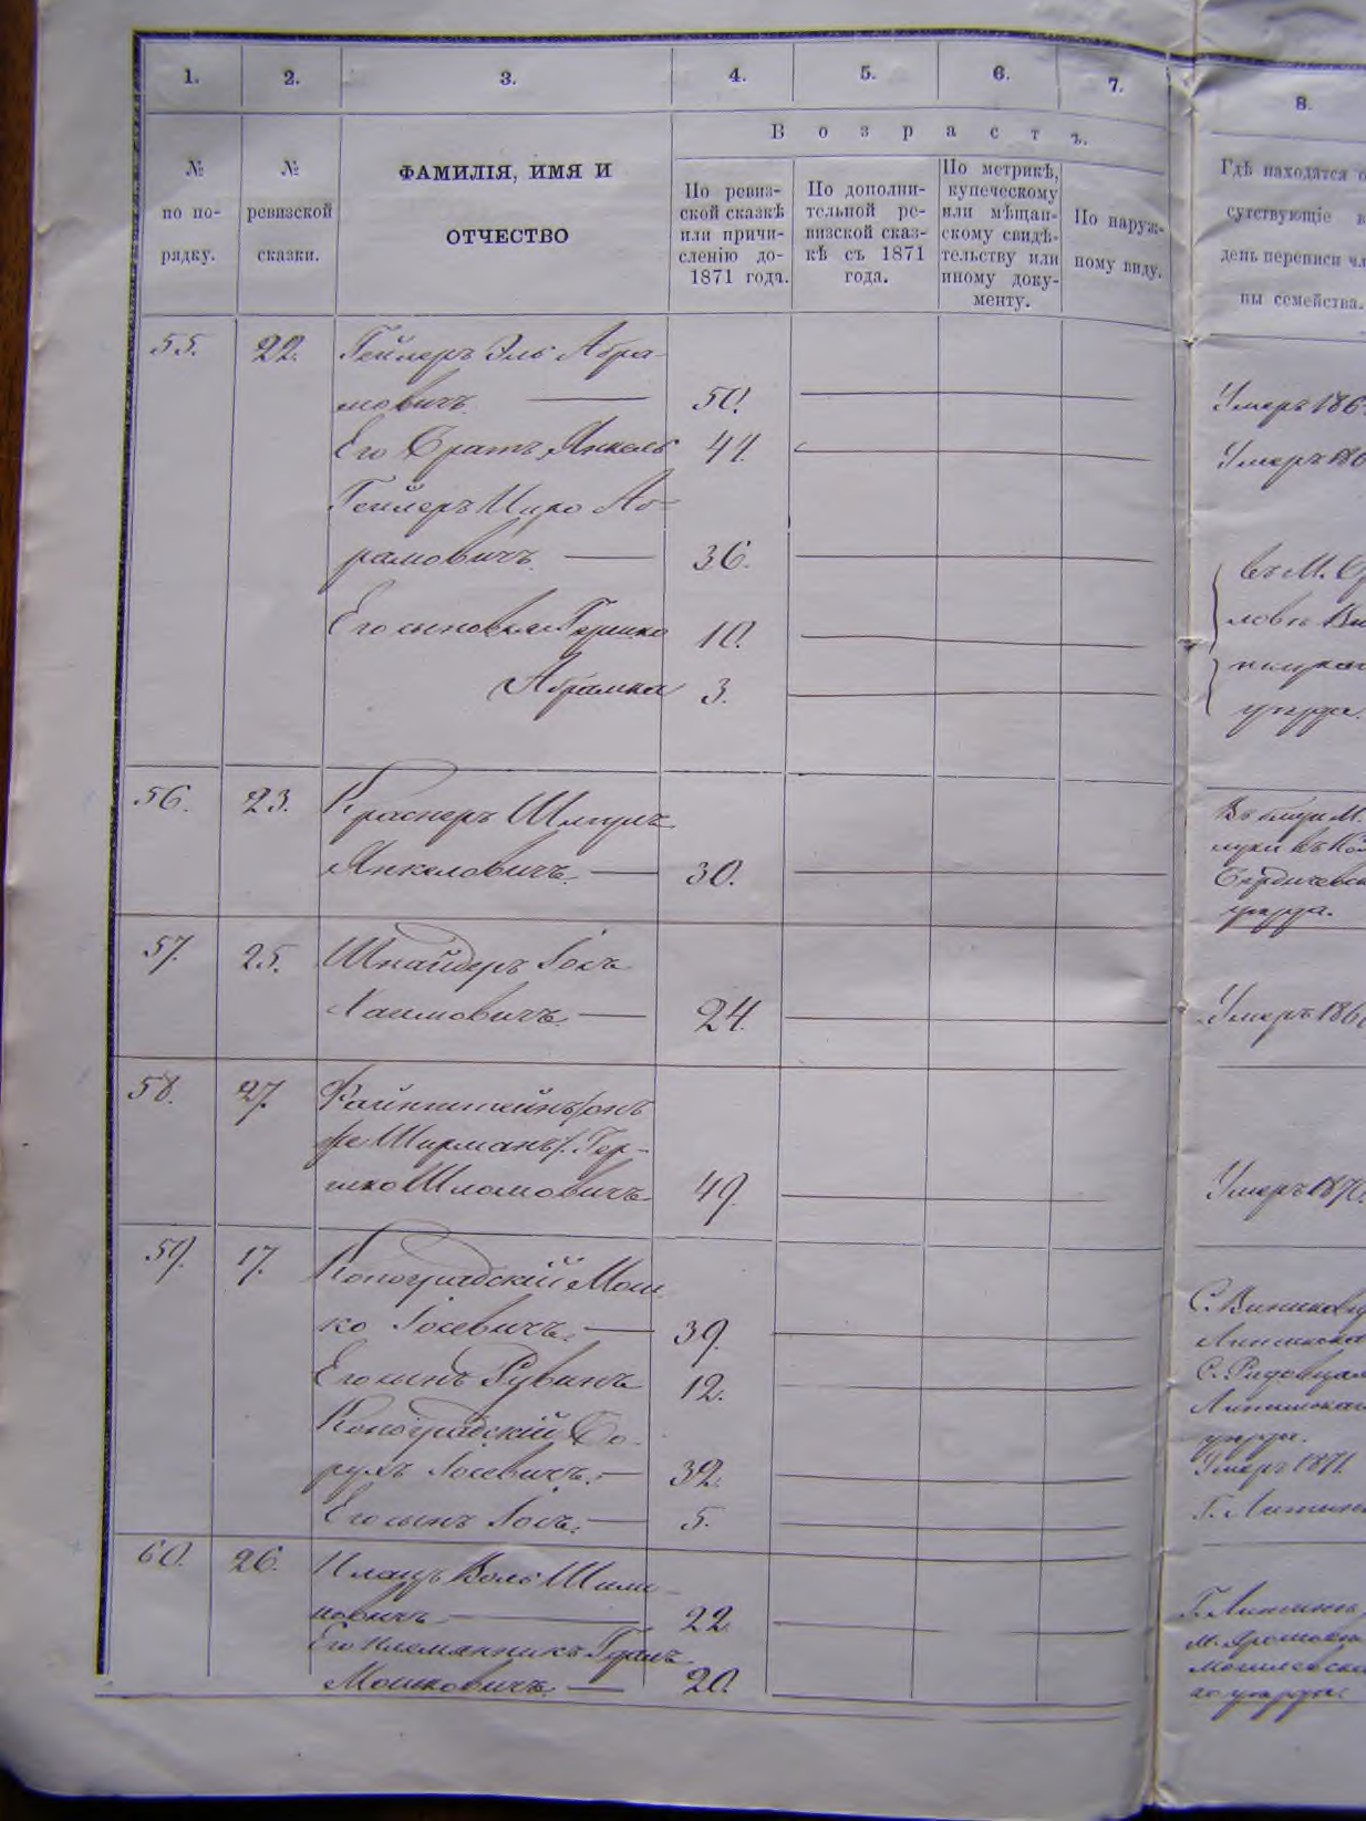 1. 2. 3. 4. 5. 6. 7. 8.
В о з р а с т ъ.
№ по порядку.
№ ревизской сказки.
ФАМИЛІЯ, ИМЯ И
ОТЧЕСТВО
По ревиз-
ской сказкѣ
или причи-
сленію до
1871 года.
По дополни-
тельной ре-
визской сказ-
кѣ съ 1871
года.
По метрикѣ,
купеческому
или мѣщан-
скому свидѣ-
тельству или
иному доку-
менту.
По наруж-
ному виду.
Гдѣ находятся о
сутствующіе в
день переписи чл
ны семейства.
55. 22. Гейлеръ Эль Абра-
мовичъ 50. Умеръ 186
Его Братъ Янкель 44. Умеръ 186
Гейлеръ Ицко Аб-
рамовичъ 36. въ М.
Его сыновья Гершко 10. ловѣ Ви
Абрамка 3.
уѣзда.
56. 23. Краснеръ Шмуль М.
Янкеловичъ 30.
Бердичевск
уѣзда.
57. 25. Шнайдеръ Іось
Хаимовичъ 24. Умеръ 186
58. 27. Файнштейнъ /онъ
же Ширманъ/. Гер-
шко Шломовичъ 49. Умеръ 1870.
59. 17. Мош С.
ко Іосевичъ. 39.
Его сынъ Рувинъ 12. С.
Бо-
рухъ Іосевичъ. 32. уѣзда.
Умеръ 1871
Его сынъ Іось. 5. Г. Литин
60. 26. Волъ Шими
новичъ 22. Г. Литинъ
Его племянникъ Гершъ М.
Мошковичъ 20. Могилевска
го уѣзда.